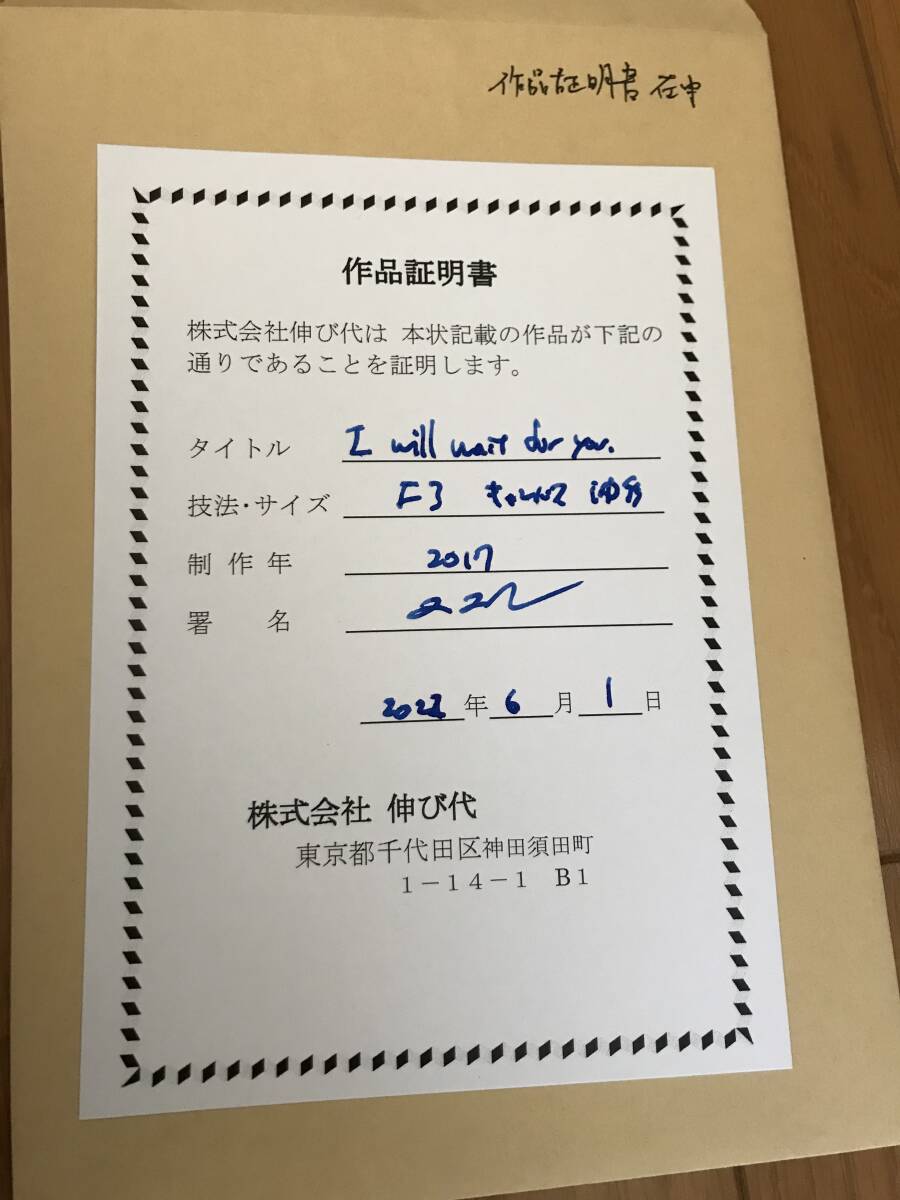 作品証明書 在中
作品証明書
株式会社伸び代は 本状記載の作品が下記の
通りであることを証明します。
タイトル I will wait for you.
技法・サイズ F3 キャンバス 油彩
制作年 2017
署名
年 6 月 1 日
株式会社 伸び代
東京都千代田区神田須田町
1-14-1 B1